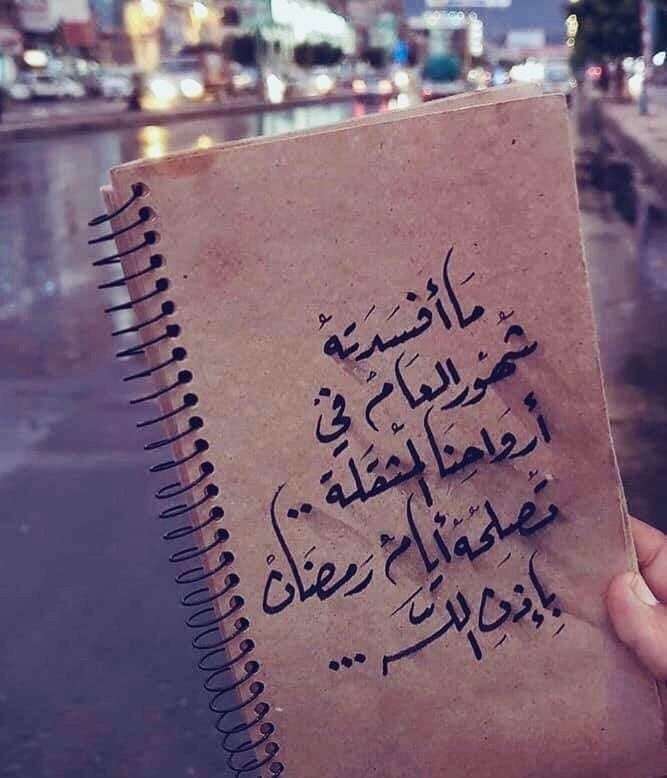 مَا أفسَدَتهُ
شُهُور العَامْ فيْ
أروَاحِنَا المُثقَلَة ..
تُصلِحُهُ أيامْ رَمضَانْ
بِإذنِ اللَّه ...